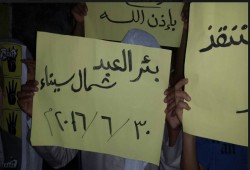 بإذن الله
تنتقذ
بئر العبد
شمال سيناء
٣٠/٦/٢٠١٦م